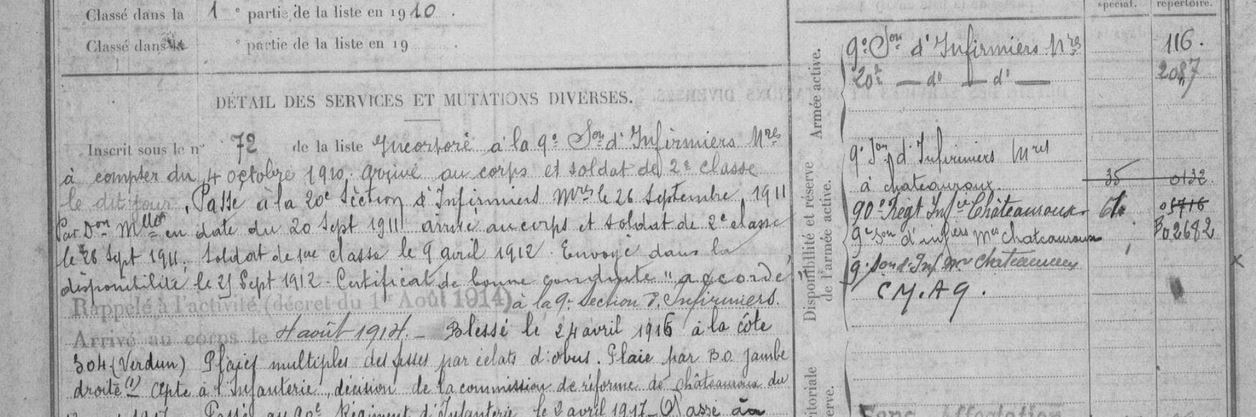 Classé dans la 1e partie de la liste en 1910.
Classé dans la e partie de la liste en 19
DÉTAIL DES SERVICES ET MUTATIONS DIVERSES.
Inscrit sous le n° 72 de la liste Incorporé à la 9e Son d'Infirmiers Mres
à compter du 4 octobre 1910, arrivé au corps et soldat de 2e classe
le dit jour. Passé à la 20e Section d'Infirmiers Mres le 26 septembre 1911
Par Don Mlle en date du 20 Sept 1911 arrivé au corps et soldat de 2e classe
le 26 Sept 1911, soldat de 1ère classe le 9 avril 1912. Envoyé dans la
disponibilité le 25 Sept 1912. Certificat de bonne conduite "accordé"
Rappelé à l'activité (décret du 1er Août 1914) à la 9e Section d'Infirmiers.
Arrivé au corps le 4 août 1914. — Blessé le 24 avril 1916 à la côte
304 (Verdun) Plaies multiples des fesses par éclats d'obus. Plaie par B.O. jambe
droite (1) Apte à l'Infanterie, décision de la commission de réforme de Châteauroux du
1917. Passé au 90e Régiment d'Infanterie le 2 avril 1917. Passé au
spécial.
répertoire.
Armée active.
9e Son d'Infirmiers Mres 116.
20e — do — do — 2087
Disponibilité et réserve
de l'armée active.
9e Son d'Infirmiers Mres
à Chateauroux. 35 0132
90e Régt Infie Châteauroux
9e Son d'infiers Mres Chateauroux 02682
9e Son d'Inf Mres Chateauroux
C.M.A 9.
Territoriale
Sans Affectation